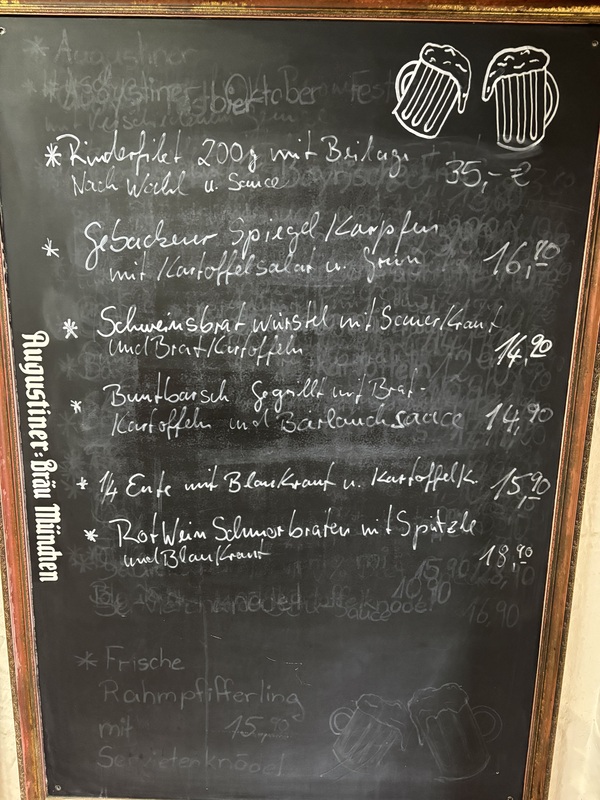 * Augustiner
Oktober Fest
* Rinderfilet 200g mit Beilage 35,- €
Nach Wahl u. Sauce
* Gebackener Spiegel Karpfen
mit Kartoffelsalat u. Grün 16,90
* Schweinsbrat würstel mit SauerKraut
und BratKartoffeln 14,90
* Buntbarsch Gegrillt mit Brat-
Kartoffeln und Bärlauchsauce 14,90
* 1/4 Ente mit BlauKraut u. KartoffelK. 15,90
* RotWein Schmorbraten mit Spätzle
und BlauKraut 18,90
15,90
10,90
16,90
* Frische
Rahmpfifferling
mit 15,90
Servietenknögel
Augustiner-Bräu München